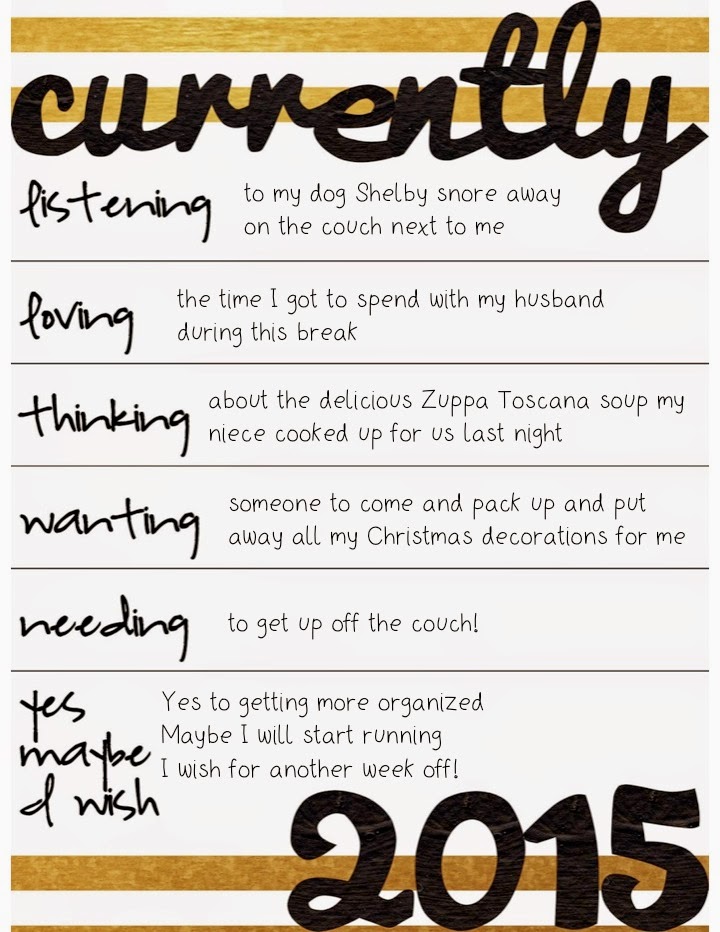 currently
listening
to my dog Shelby snore away
on the couch next to me
loving
the time I got to spend with my husband
during this break
thinking
about the delicious Zuppa Toscana soup my
niece cooked up for us last night
wanting
someone to come and pack up and put
away all my Christmas decorations for me
needing
to get up off the couch!
yes
maybe
I wish
Yes to getting more organized
Maybe I will start running
I wish for another week off!
2015